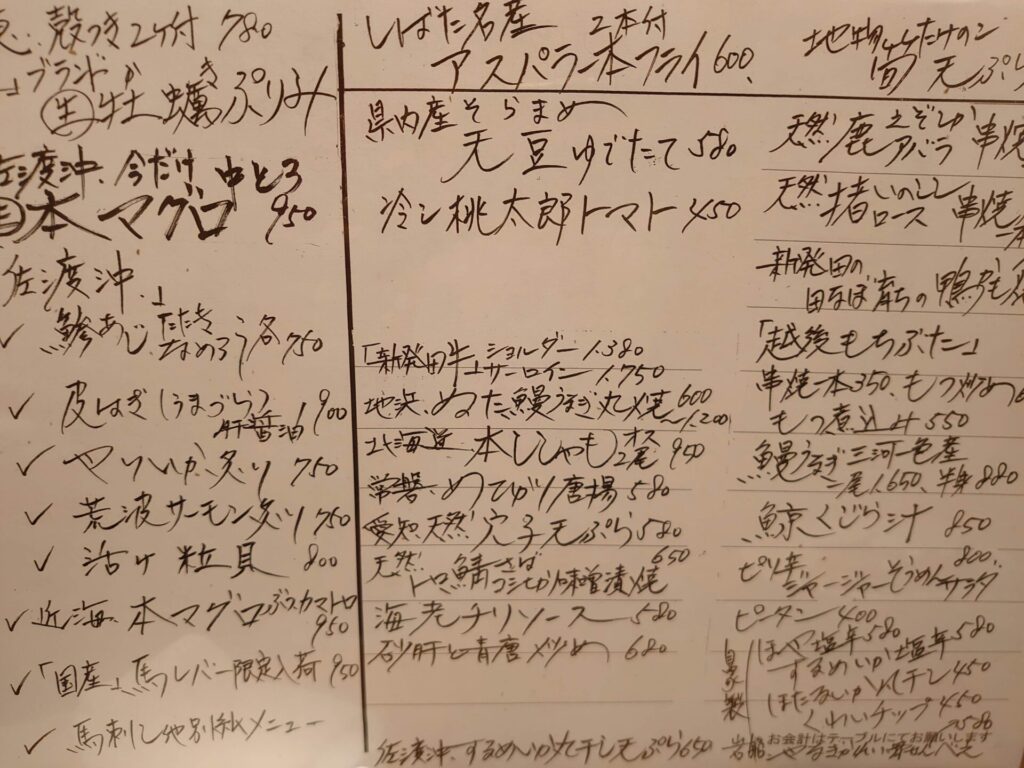 殻つき2ヶ付 780
ブランド
生 牡蠣 かき ぷりみ
佐渡沖、今だけ 中とろ
本マグロ 950
佐渡沖、」
✓ 鯵あじ、たたき なめろう 各750
✓ 皮はぎ(うまづら) 肝醤油 900
✓ やりいか炙り 750
✓ 荒波サーモン炙り 750
✓ 活け粒貝 800
✓ 近海 本マグロ ぶつカマトロ 950
✓ 「国産」馬レバー限定入荷 950
✓ 馬刺し他別紙メニュー
しばた名産 2本付
アスパラ一本フライ 600、
県内産 そらまめ
天豆ゆでたて 580
冷し桃太郎トマト 450
「新発田牛」ショルダー 1.380
サーロイン 1.750
地浜、ぬた鰻うなぎ丸焼 600〜1.200
北海道、本ししゃも オス2尾 950
常磐、めひかり唐揚 580
愛知天然穴子天ぷら 580
天然 トロ鯖さば コシヒカリ味噌漬焼 650
海老チリソース 580
砂肝と青唐炒め 680
佐渡沖、するめいか丸干し天ぷら 650
地物
旬 天ぷら
天然鹿えぞしか アバラ 串焼
天然 猪いのしし ロース 串焼
新発田の
田なぼ育ちの鴨
「越後もちぶた」
串焼一本350、もつ炒め
もつ煮込み 550
鰻うなぎ三河一色産
一尾1.650、半身880
鯨くじら汁 850
ピリ辛 ジャージャーそうめんサラダ 800
ピータン 400
自家製
ほや塩辛 580
するめいか塩辛 580
ほたるいか 干し 450
くわいチップ 450
お会計はテーブルにてお願いします